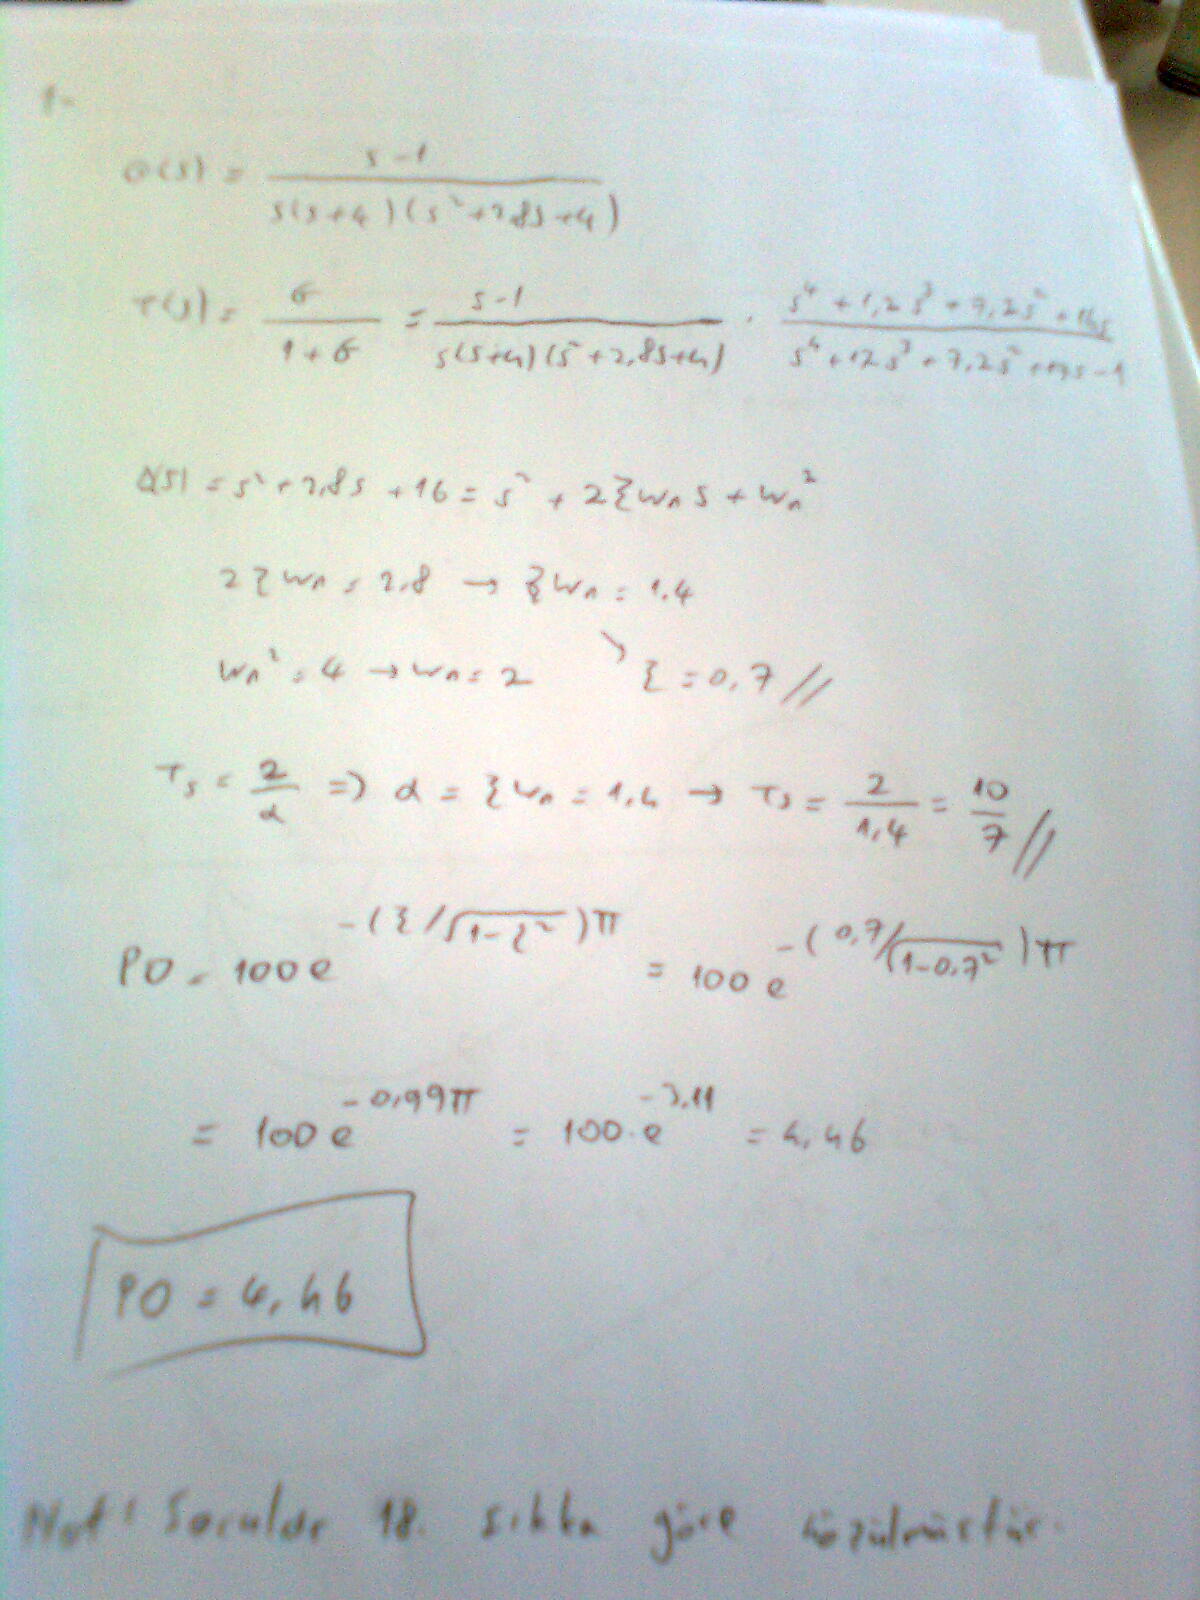 1-
G(s) = s-1 / s(s+4)(s²+2,8s+4)
T(s) = G / 1+G = s-1 / s(s+4)(s²+2,8s+4) · s⁴+1,2s³+7,2s²+16s / s⁴+12s³+7,2s²+17s-1
Δ(s) = s²+2,8s+16 = s² + 2ξwₙs + wₙ²
2ξwₙ = 2.8 → ξwₙ = 1.4
wₙ² = 4 → wₙ = 2 ↘ ξ = 0,7 //
Ts = 2/α => α = ξwₙ = 1,4 → Ts = 2/1,4 = 10/7 //
PO = 100e^-(ξ/√1-ξ²)π = 100e^-(0,7/√1-0,7²)π
= 100e^-0,99π = 100·e^-3.11 = 4,46
PO = 4,46
Not: Sorular 18. şıkka göre çözülmüştür.